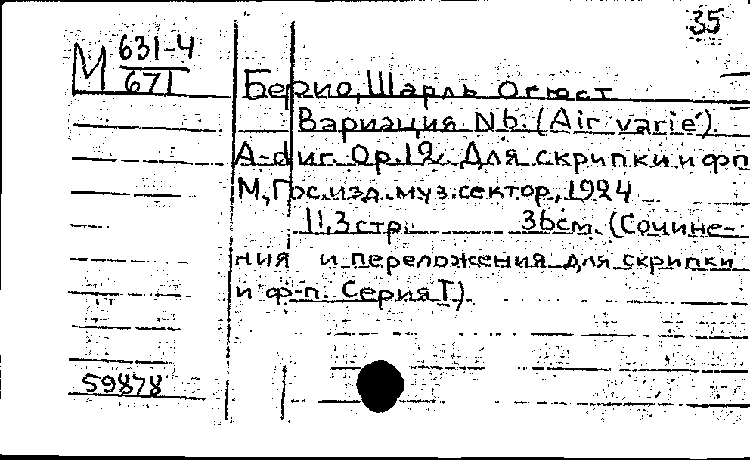 35
М 631-4
671
Берио, Шарль Огюст
Вариация N 6. (Air varie).
A-dur. Op. 12. Для скрипки и фп
М., Гос. изд. муз. сектор, 1924
11, 3 стр. 36 см. (Сочине-
ния и переложения для скрипки
и ф-п. Серия I)
59878